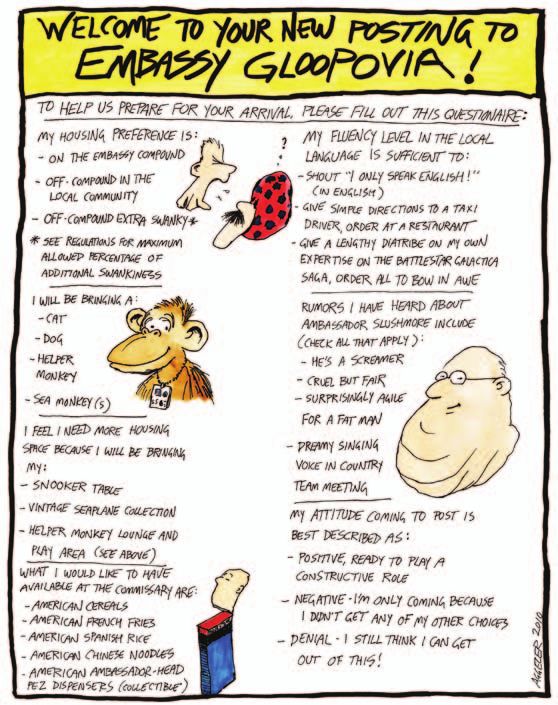 WELCOME TO YOUR NEW POSTING TO
EMBASSY GLOOPOVIA!
TO HELP US PREPARE FOR YOUR ARRIVAL, PLEASE FILL OUT THIS QUESTIONAIRE:
MY HOUSING PREFERENCE IS:
- ON THE EMBASSY COMPOUND
- OFF-COMPOUND IN THE
LOCAL COMMUNITY
- OFF-COMPOUND EXTRA SWANKY*
* SEE REGULATIONS FOR MAXIMUM
ALLOWED PERCENTAGE OF
ADDITIONAL SWANKINESS
I WILL BE BRINGING A:
- CAT
- DOG
- HELPER
MONKEY
- SEA MONKEY(S)
I FEEL I NEED MORE HOUSING
SPACE BECAUSE I WILL BE BRINGING
MY:
- SNOOKER TABLE
- VINTAGE SEAPLANE COLLECTION
- HELPER MONKEY LOUNGE AND
PLAY AREA (SEE ABOVE)
WHAT I WOULD LIKE TO HAVE
AVAILABLE AT THE COMMISSARY ARE:
- AMERICAN CEREALS
- AMERICAN FRENCH FRIES
- AMERICAN SPANISH RICE
- AMERICAN CHINESE NOODLES
- AMERICAN AMBASSADOR-HEAD
PEZ DISPENSERS (COLLECTIBLE)
?
MY FLUENCY LEVEL IN THE LOCAL
LANGUAGE IS SUFFICIENT TO:
- SHOUT "I ONLY SPEAK ENGLISH!"
(IN ENGLISH)
- GIVE SIMPLE DIRECTIONS TO A TAXI
DRIVER, ORDER AT A RESTAURANT
- GIVE A LENGTHY DIATRIBE ON MY OWN
EXPERTISE ON THE BATTLESTAR GALACTICA
SAGA, ORDER ALL TO BOW IN AWE
RUMORS I HAVE HEARD ABOUT
AMBASSADOR SLUSHMORE INCLUDE
(CHECK ALL THAT APPLY):
- HE'S A SCREAMER
- CRUEL BUT FAIR
- SURPRISINGLY AGILE
FOR A FAT MAN
- DREAMY SINGING
VOICE IN COUNTRY
TEAM MEETING
MY ATTITUDE COMING TO POST IS
BEST DESCRIBED AS:
- POSITIVE, READY TO PLAY A
CONSTRUCTIVE ROLE
- NEGATIVE - I'M ONLY COMING BECAUSE
I DIDN'T GET ANY OF MY OTHER CHOICES
- DENIAL - I STILL THINK I CAN GET
OUT OF THIS!
AGGELER 2010